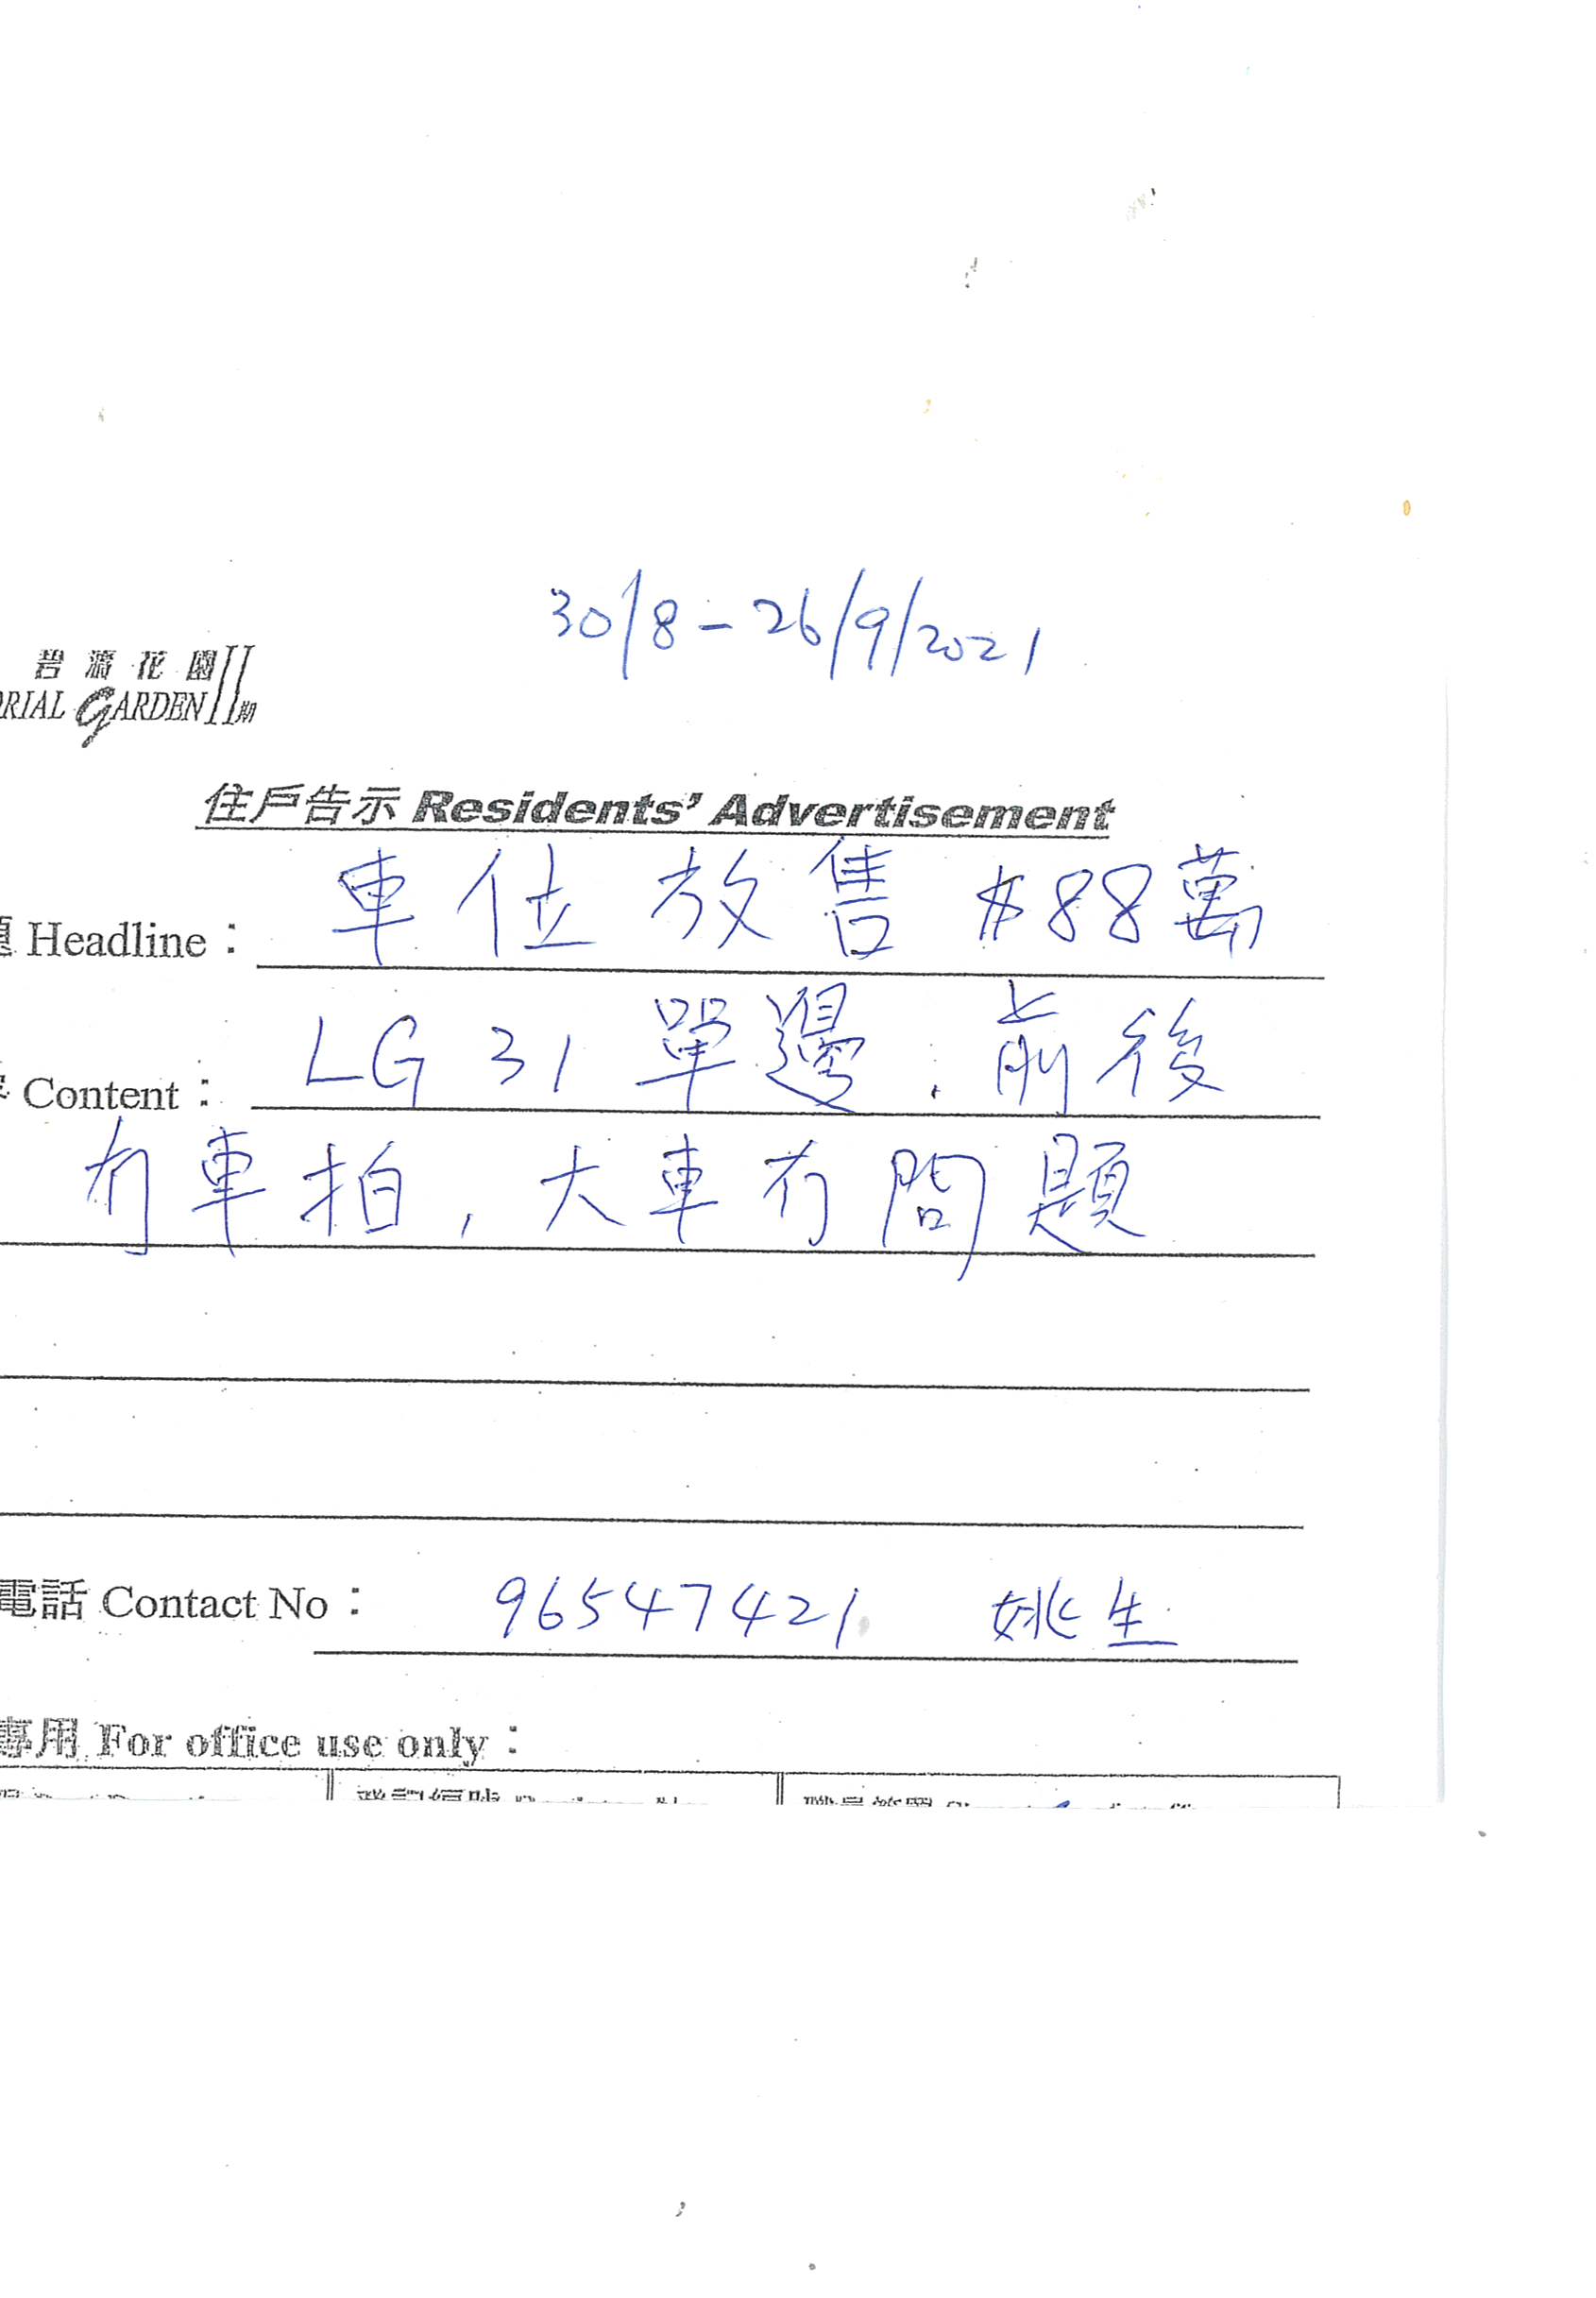 30/8-26/9/2021
碧濤花園II期
RIAL GARDEN
住戶告示 Residents' Advertisement
Headline： 車位放售 $88萬
Content： LG 31 單邊．前後
冇車拍，大車冇問題
電話 Contact No： 96547421 姚生
專用 For office use only：